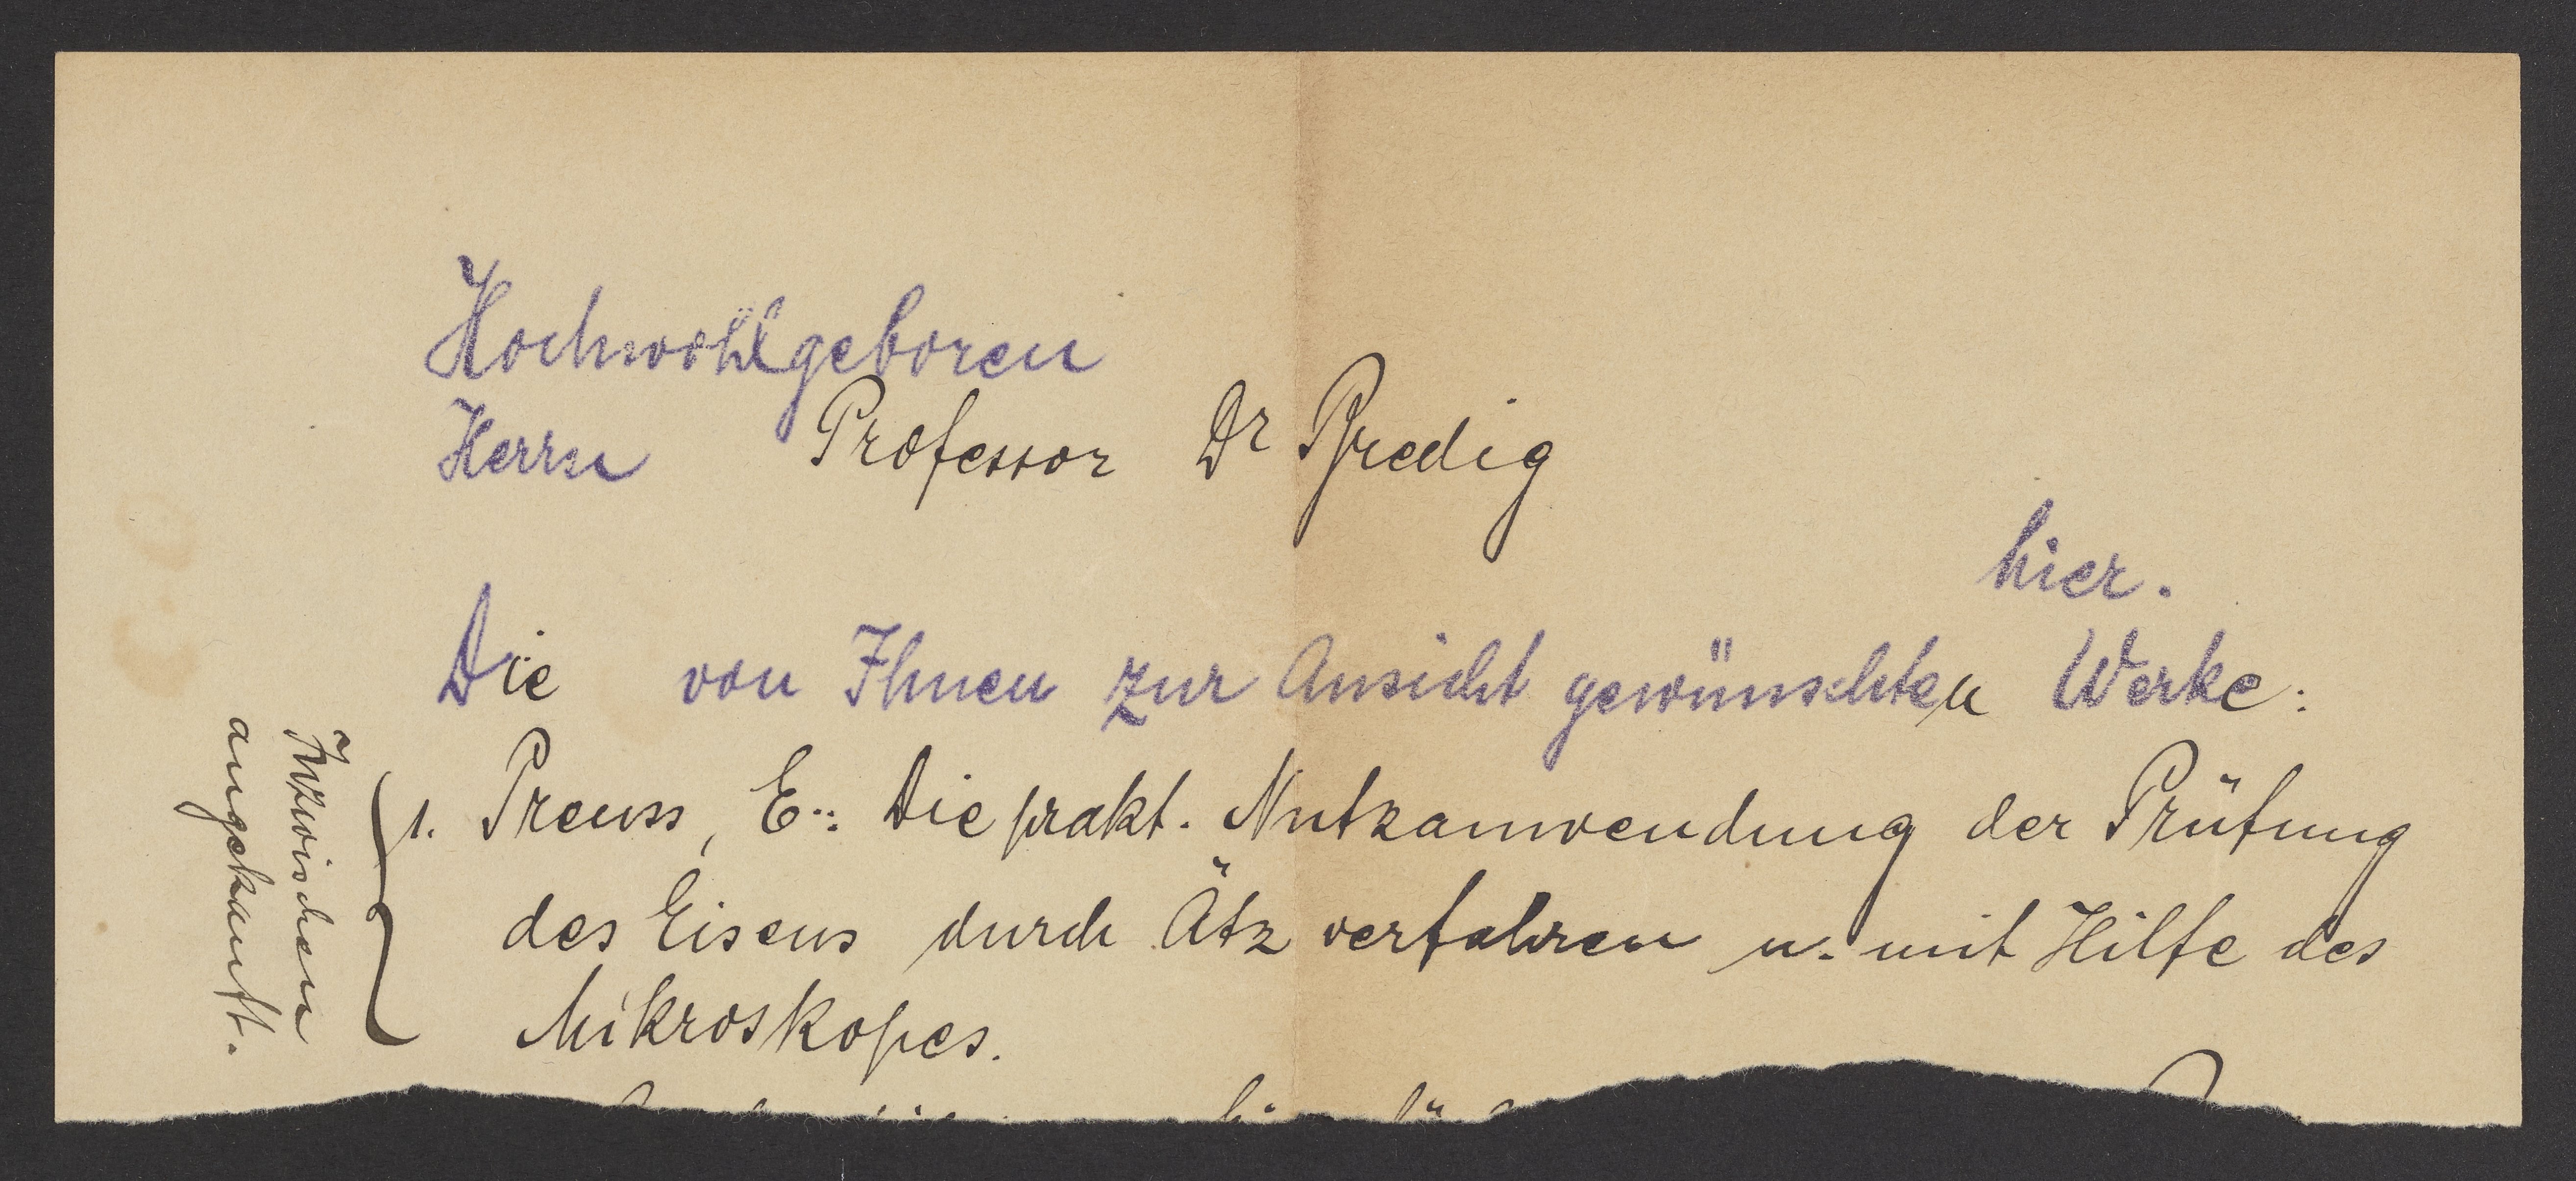 Hochwohlgeboren
Herrn Professor Dr Bredig
hier.
Die von Ihnen zur Ansicht gewünschten Werke:
1. Preuss, E.: Die prakt. Nutzanwendung der Prüfung
des Eisens durch Ätzverfahren u. mit Hilfe des
Mikroskopes.
Inzwischen
angekauft.